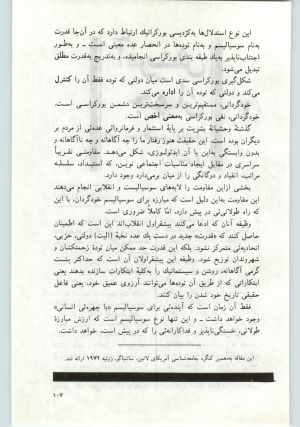 این نوع استدلال‌ها به‌کژدیسی بورکراتیك ارتباط دارد که در آن‌جا قدرت
به‌نام سوسیالیسم و به‌نام توده‌ها در انحصار عده معینی است ــ و به‌طور
اجتناب‌ناپذیر به‌یك طبقه بندی بورکراسی انجامیده، و به‌تدریج به‌قدرت مطلق
تبدیل می‌شود.
شکل‌گیری بورکراسی سدی است میان دولتی که توده فقط آن را کنترل
می‌کند و دولتی که توده آن را اداره می‌کند.
خودگردانی، مستقیم‌ترین و سرسخت‌ترین دشمن بورکراسی است.
خودگردانی، نفی بورکراسی به‌معنی اخص است.
گذشتهٔ وحشیانهٔ بشریت بر پایهٔ استثمار و فرمانروائی عده‌ئی از مردم بر
دیگران بوده است. این حقیقت هنوز رفتار ما را چه آگاهانه و چه ناآگاهانه و
بدون وابستگی به‌این یا آن ایدئولوژی، شکل می‌دهد. مقاومتی تقریباً
سراسری در مقابل ایجاد مناسبات اجتماعی نوین، که استبداد، سلسله
مراتب، انقیاد و دوگانگی را از میان برمی‌دارد وجود دارد.
بخشی ازاین مقاومت را لایه‌های سوسیالیست و انقلابی انجام می‌دهند
این مقاومت به‌این دلیل است که مبارزه برای سوسیالیسم خودگردان، با این
که راه طولانی‌ئی در پیش دارد، امّا کاملاً ضروری است.
وظیفه آنان که ادعا می‌کنند پیشقراول انقلاب‌اند این است که اطمینان
حاصل کنند که «قدرت» جدید در دست یك عده نخبهٔ (الیت) دولتی، حزبی،
اتحادیه‌ئی متمرکز نشود. بلکه این قدرت حد ممکن میان تودهٔ زحمتکشان و
شهروندان توزیع شود. وظیفه این پیشقراولان آن است که حداکثر بشت
گرمی آگاهانه، روشن و سیستماتیك را به‌کلیهٔ ابتکارات سازنده بدهند یعنی
ابتکاراتی که از طریق آن توده‌ها می‌توانند آرزوی عمیق خود، یعنی فاعل
حقیقی تاریخ خود شدن را بیان کنند.
فقط آن زمان است که آینده‌ئی برای سوسیالیسم «با چهره‌ئی انسانی»
وجود خواهد داشت ــ و این تنها نوع سوسیالیسم است که ارزش مبارزهٔ
طولانی، خستگی‌ناپذیر و فداکارانه‌ئی را که در پیش است، خواهد داشت.
این مقاله به‌دهمین کنگره جامعه‌شناسی آمریکای لاتین، سانتیاگو، ژوئیه ۱۹۷۲ ارائه شد.
۱۰۷